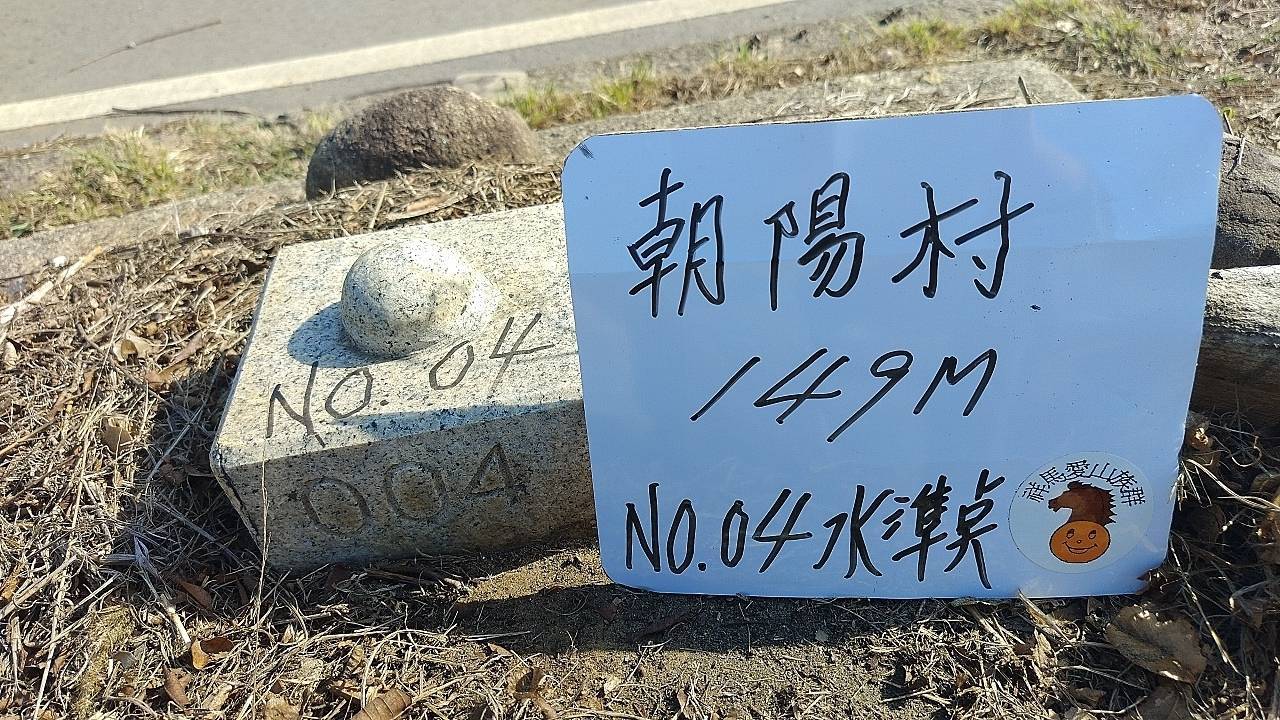 NO. 04
004
朝陽村
149M
NO.04水準点
祥馬愛山族群